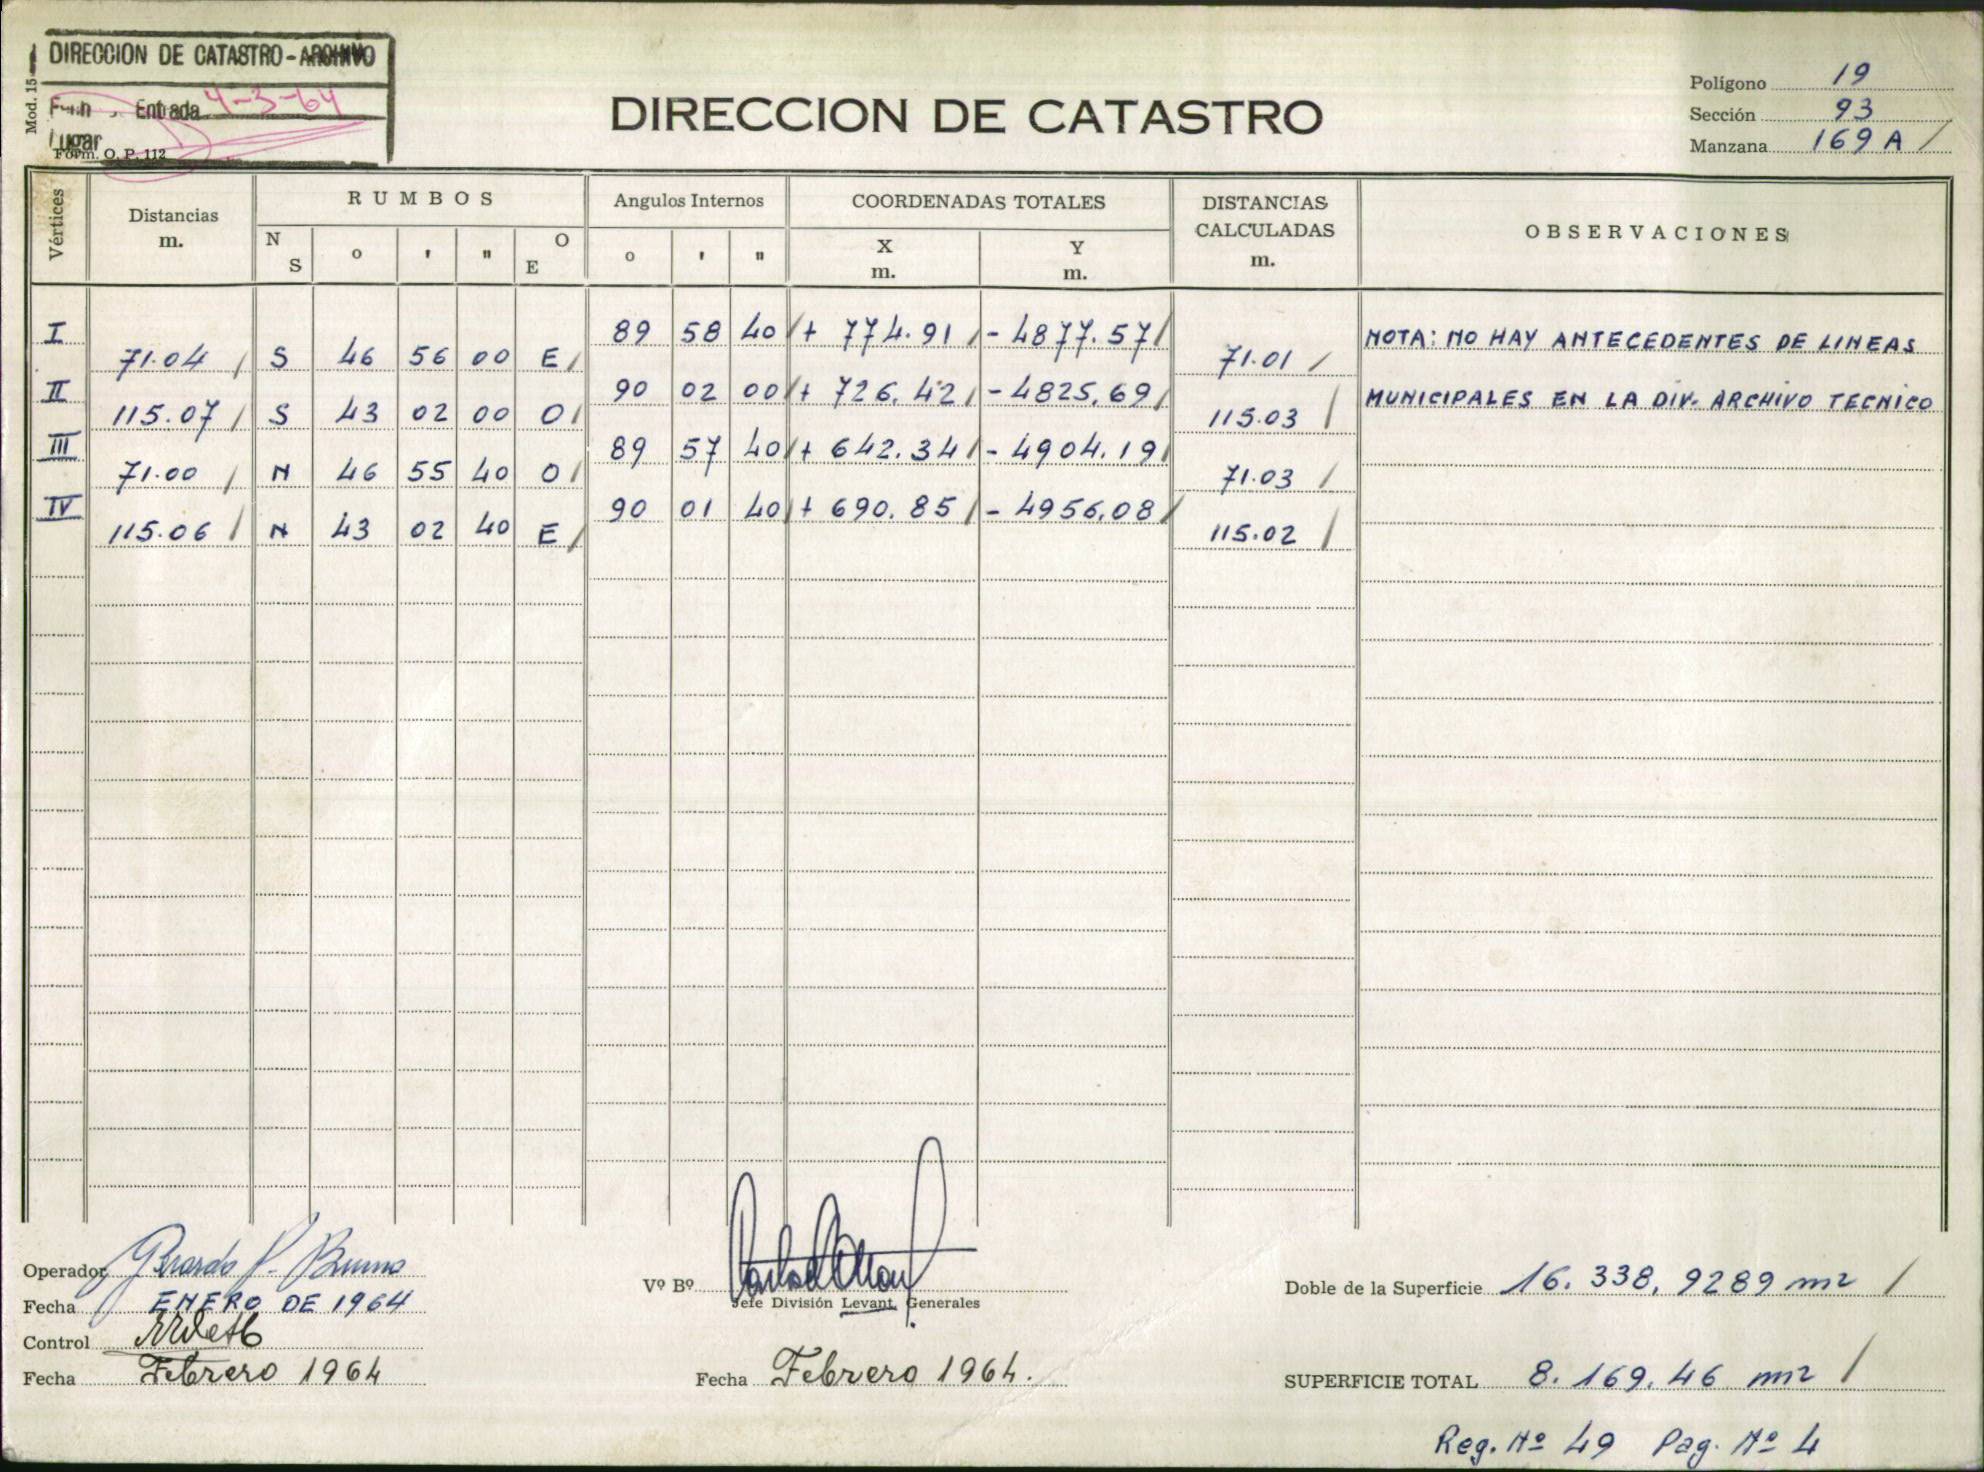 DIRECCION DE CATASTRO - ARCHIVO
Mod. 15
Entrada 4-3-64
Lugar
Form. O. P. 112
DIRECCION DE CATASTRO
Polígono 19
Sección 93
Manzana 169 A /
Vértices
Distancias m.
RUMBOS
N S ° ' " O E
Angulos Internos
° ' "
COORDENADAS TOTALES
X m. Y m.
DISTANCIAS CALCULADAS m.
OBSERVACIONES
I 89 58 40 / + 774.91 / - 4877.57 /
71.04 / S 46 56 00 E / 71.01 /
II 90 02 00 / + 726.42 / - 4825.69 /
115.07 / S 43 02 00 O / 115.03 /
III 89 57 40 / + 642.34 / - 4904.19 /
71.00 / N 46 55 40 O / 71.03 /
IV 90 01 40 / + 690.85 / - 4956.08 /
115.06 / N 43 02 40 E / 115.02 /
NOTA: NO HAY ANTECEDENTES DE LINEAS
MUNICIPALES EN LA DIV. ARCHIVO TECNICO
Operador Gerardo P. Bruno
Fecha ENERO DE 1964
Control
Fecha Febrero 1964
Vº Bº
Jefe División Levant. Generales
Fecha Febrero 1964.
Doble de la Superficie 16.338,9289 m2 /
SUPERFICIE TOTAL 8.169.46 m2 /
Reg. Nº 49 Pag. Nº 4